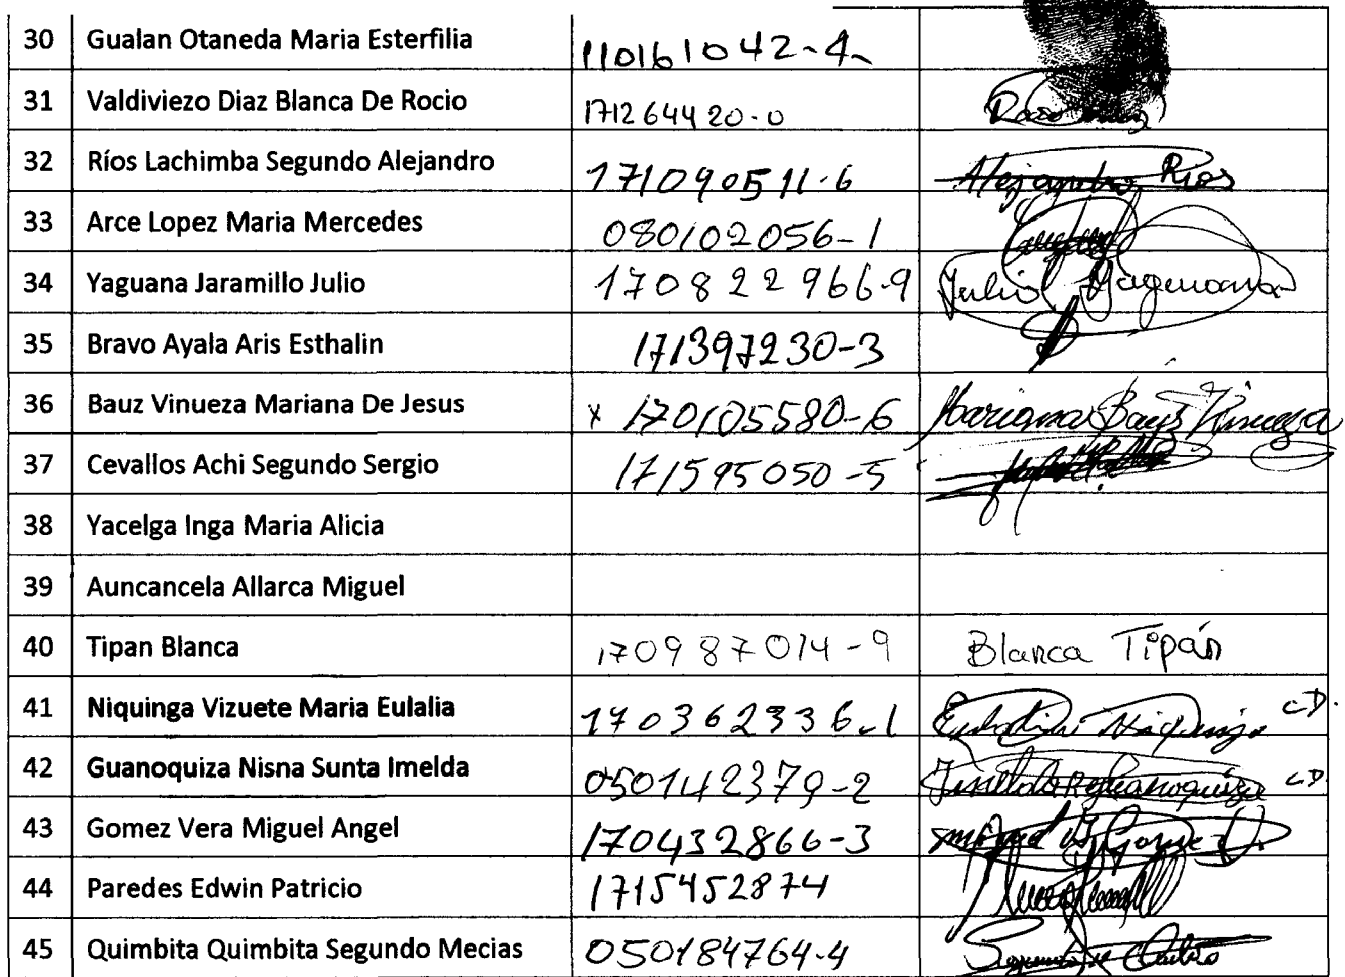 30 Gualan Otaneda Maria Esterfilia 110161042-4
31 Valdiviezo Diaz Blanca De Rocio 171264420-0
32 Ríos Lachimba Segundo Alejandro 171090511-6 Alejandro Ríos
33 Arce Lopez Maria Mercedes 080102056-1
34 Yaguana Jaramillo Julio 170822966-9 Julio Yaguana
35 Bravo Ayala Aris Esthalin 171397230-3
36 Bauz Vinueza Mariana De Jesus x 170105580-6 Mariana Bauz Vinueza
37 Cevallos Achi Segundo Sergio 171595050-5
38 Yacelga Inga Maria Alicia
39 Auncancela Allarca Miguel
40 Tipan Blanca 170987014-9 Blanca Tipán
41 Niquinga Vizuete Maria Eulalia 170362336-1 CD.
42 Guanoquiza Nisna Sunta Imelda 050142379-2 CD.
43 Gomez Vera Miguel Angel 170432866-3
44 Paredes Edwin Patricio 1715452874
45 Quimbita Quimbita Segundo Mecias 050184764-4